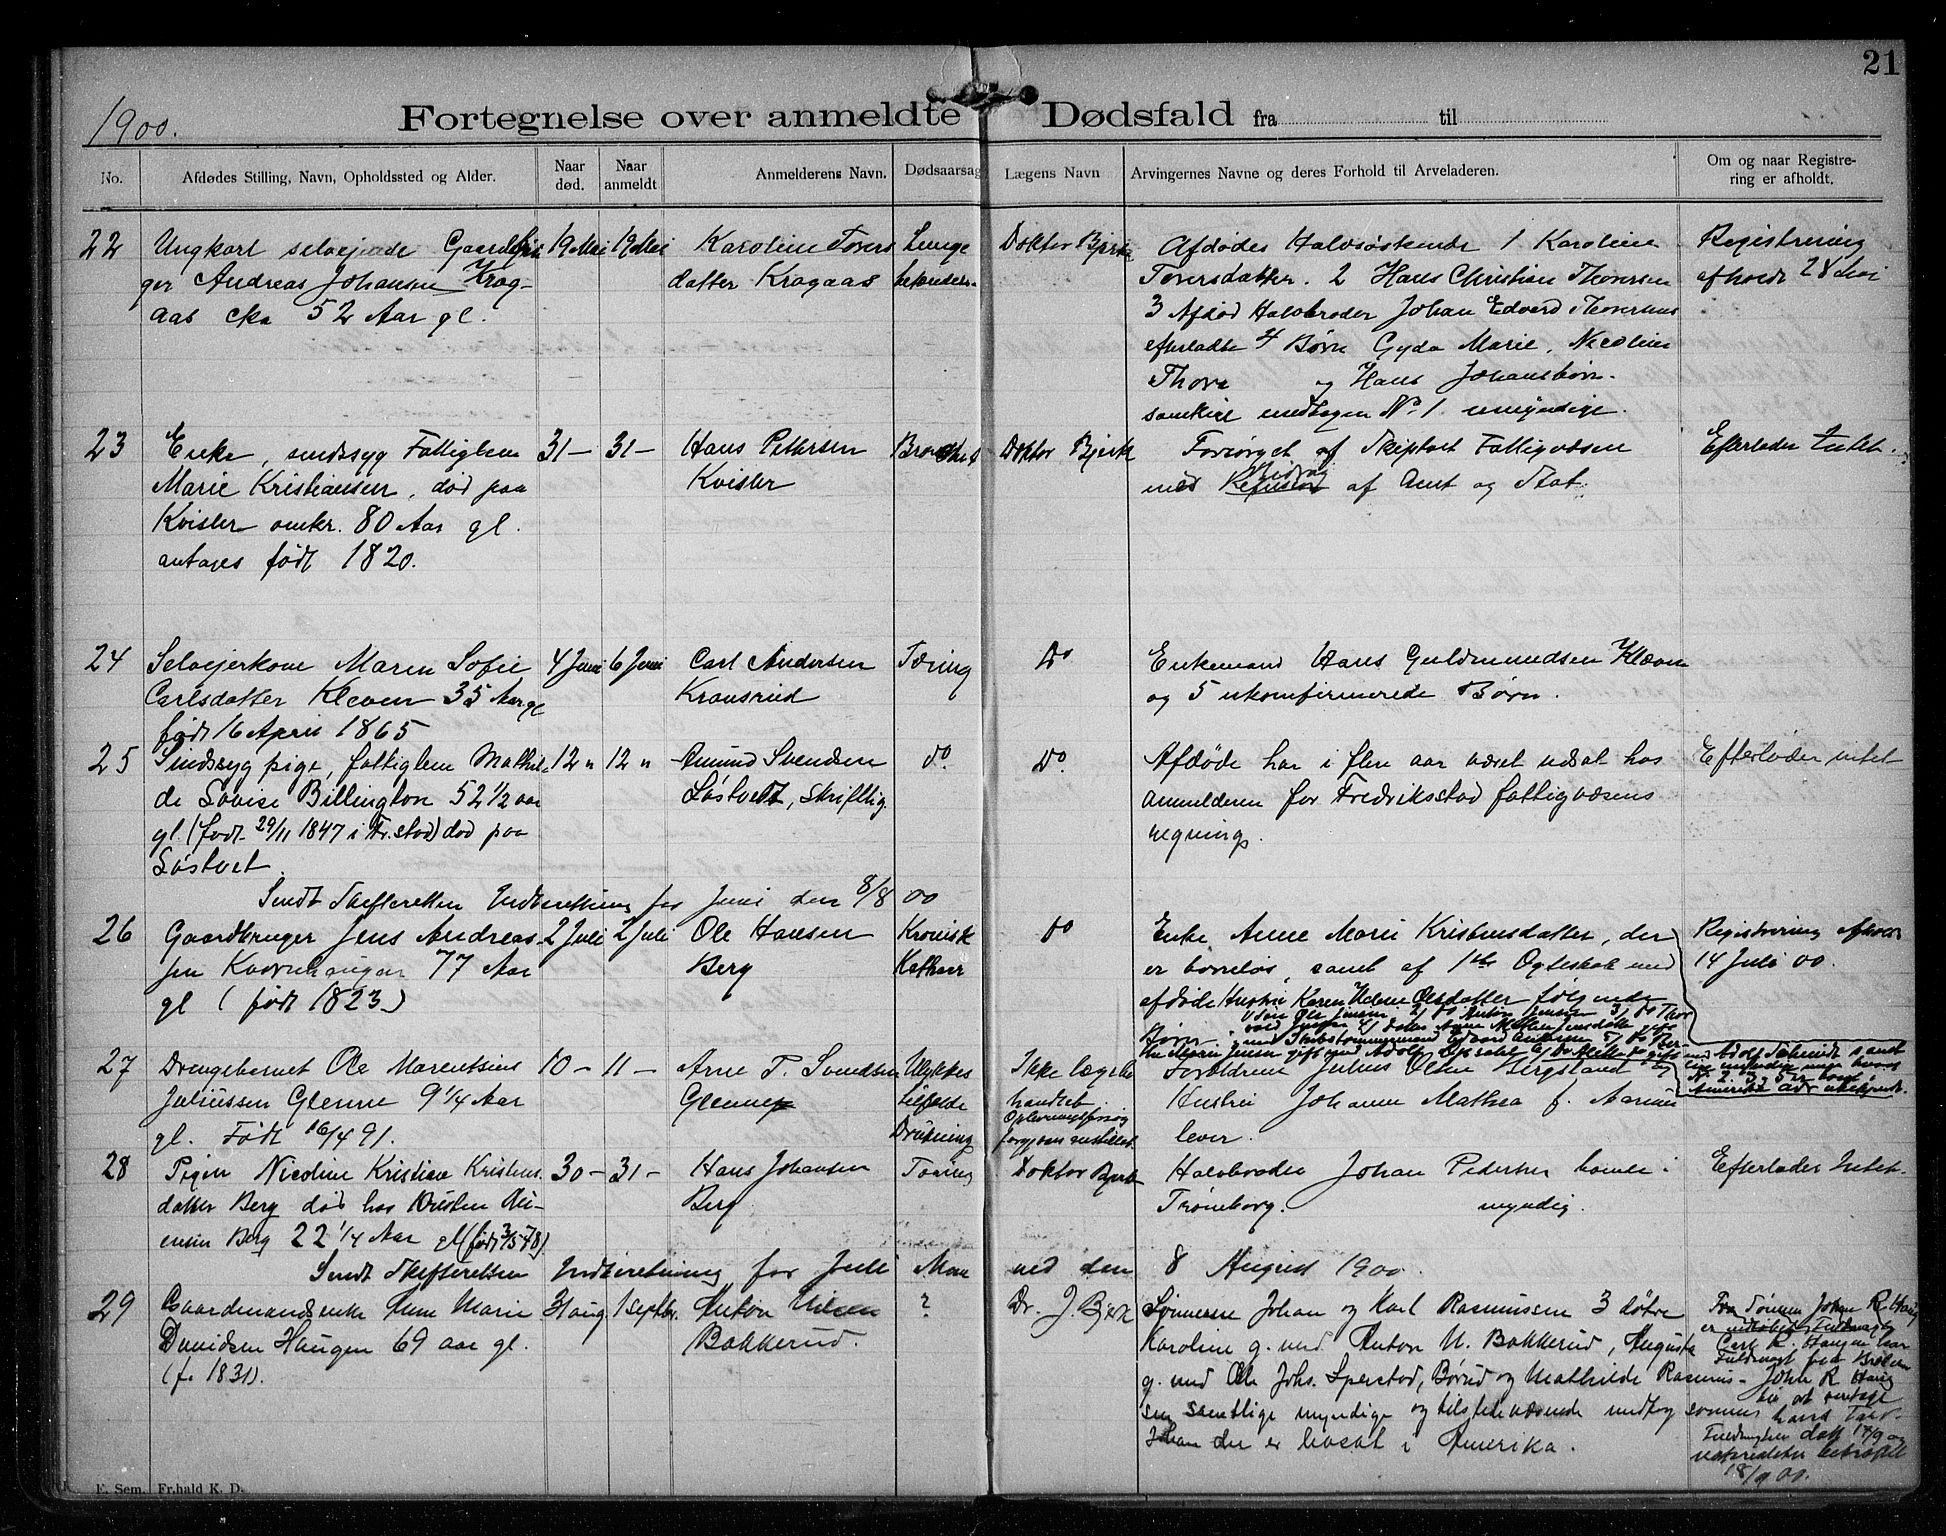 21
1900.
Fortegnelse over anmeldte Dødsfald fra til
No.
Afdødes Stilling, Navn, Opholdssted og Alder.
Naar død.
Naar anmeldt
Anmelderens Navn.
Dødsaarsag
Lægens Navn
Arvingernes Navne og deres Forhold til Arveladeren.
Om og naar Registre-
ring er afholdt.
22
Ungkarl selveiende Gaardbru
ger Andreas Johansen Krog-
aas cka 52 Aar gl.
19 Mai
19 Mai
Karoline Tovers
datter Krogaas
Lunge
betændelse
Doktor Bjerke
Afdødes Halvsøskende 1 Karoline
Toversdatter. 2 Hans Christian Thoversen
3 Afdød Halvbroder Johan Edvard Thoversens
efterladte 4 Børn Gyda Marie, Nicoline
Thora og Hans Johansbørn.
samtlige undtagen No. 1 umyndige.
Registrering
afholdt 28 Mai
23
Enke, sindssyg Fattiglem
Marie Kristiansen, død paa
Kvisler omkr. 80 Aar gl.
antages født 1820.
31 –
31 –
Hans Pettersen
Kvisler
Bronchit
Doktor Bjerke
Forsørget af Skiptvet Fattigvæsen
med Refusion Bidrag af Amt og Stat.
Efterlader Intet.
24
Selveierkone Maren Sofie
Carlsdatter Kleven 35 Aar gl
født 16 April 1865
4 Juni
6 Juni
Carl Andersen
Kransrud
Tæring
Do
Enkemand Hans Guldmundsen Kleven
og 5 ukonfirmerede Børn.
25
Sindssyg pige, fattiglem Mathil-
de Lovise Billington 52 1/2 aar
gl. (født 29/11 1847 i Fr.stad) død paa
Løstvet
12 "
12 "
Amund Svendsen
Løstvedt, skriftlig.
do
Do.
Afdøde har i flere aar været udsat hos
anmelderen for Fredriksstad fattigvæsens
regning.
Efterlader intet
Sendt Skifteretten Indberetning for Juni den 8/8 00
26
Gaardbruger Jens Andreas-
sen Kvernhaugen 77 Aar
gl (født 1823)
2 Juli
2 Juli
Ole Hansen
Berg
Kronisk
Katharr
do
Enke Anne Marie Kristensdatter, der
er barnløs, samt af 1ste Ægteskab med
afdøde Hustru Karen Helene Olsdatter følgende
Børn:
Registrering afholdt
14 Juli 00.
27
Drengebarnet Ole Marentsius
Juliussen Glenne 9 1/4 Aar
gl. Født 16/4 91.
10 –
11 –
Arne T. Svendsen
Glenne
Ulykkes
tilfælde
Drukning
Ikke læge be
handlet.
Oplivningsforsøg
Forældrene Julius Olsen Bergsland og
Hustru Johanne Mathea f. Aarnes
lever.
28
Pigen Nicoline Kristine Kristens
datter Berg død hos Kristen
Berg 22 1/4 Aar gl (født 3/5 78)
30 –
31 –
Hans Johansen
Berg
Tæring
Doktor Bjerke
Halvbroder Johan Pedersen
Trømborg. myndig.
Efterlader Intet.
Sendt Skifteretten Indberetning for Juli Maaned den 8 August 1900
29
Gaardmandsenke Anne Marie
Davidsen Haugen 69 aar gl.
(f. 1831).
31 aug.
1 septbr.
Anton Nilsen
Bakkerud.
?
Dr. J. Bjerk
Sønnerne Johan og Karl Rasmussen 3 døtre
Karoline g. med Anton N. Bakkerud, Augusta
g. med Ole Johs. Sperstad, Børud og Mathilde Rasmus-
sen samtlige myndige og tilstedeværende undtag sønnen
Johan der er bosat i Amerika.
Fra Sønnen Johan R. Haug
er Fuldmagt
Carl R. Haugen har
Fuldmagt fra Broderen
John R. Haug
til at
hans Tarv.
Fuldmagten dat 17/9 og
18/9 00.
E. Sem. Fr.hald K. D.